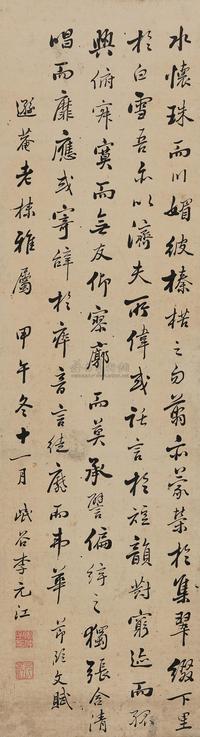 水懷珠而川媚彼榛楛之勿翦亦蒙榮於集翠綴下里
於白雪吾亦以濟夫所偉或託言於短韻對窮迹而孤
興俯寂寞而無友仰寥廓而莫承譬偏絃之獨張含清
唱而靡應或寄辭於瘁音言徒靡而弗華 節臨文賦
遯菴老棣雅屬 甲午冬十一月 岷谷李元江